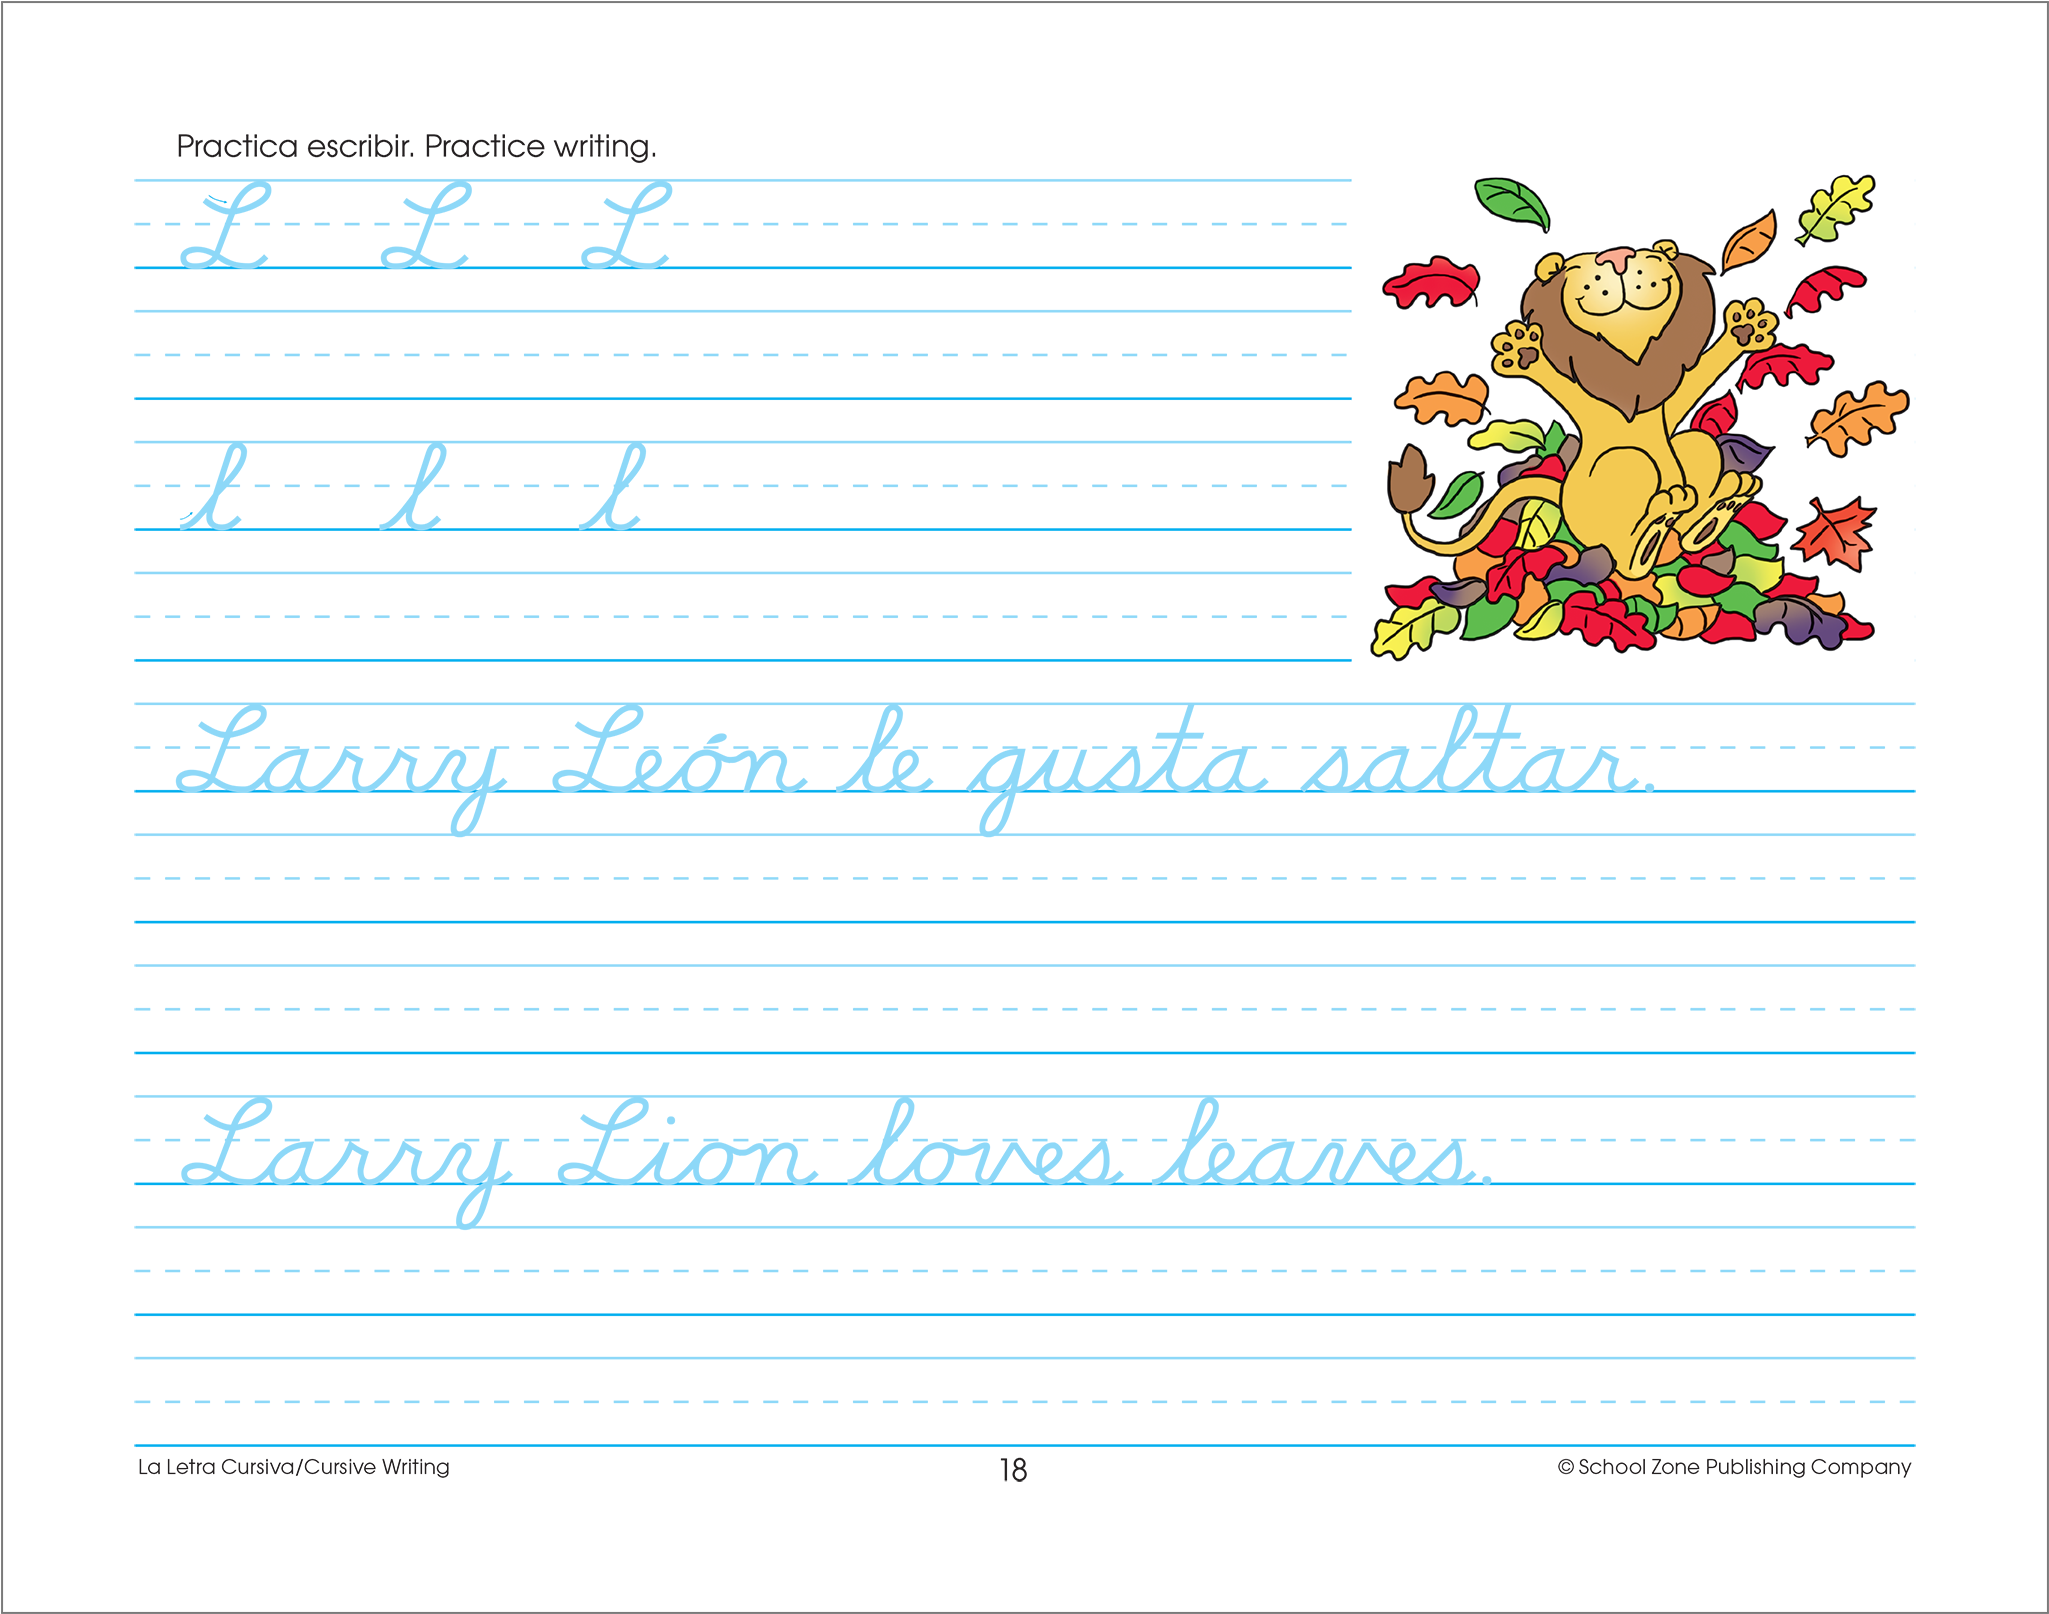 Practica escribir. Practice writing.
L L L
l l l
Larry León le gusta saltar.
Larry Lion loves leaves.
La Letra Cursiva/Cursive Writing 18 © School Zone Publishing Company